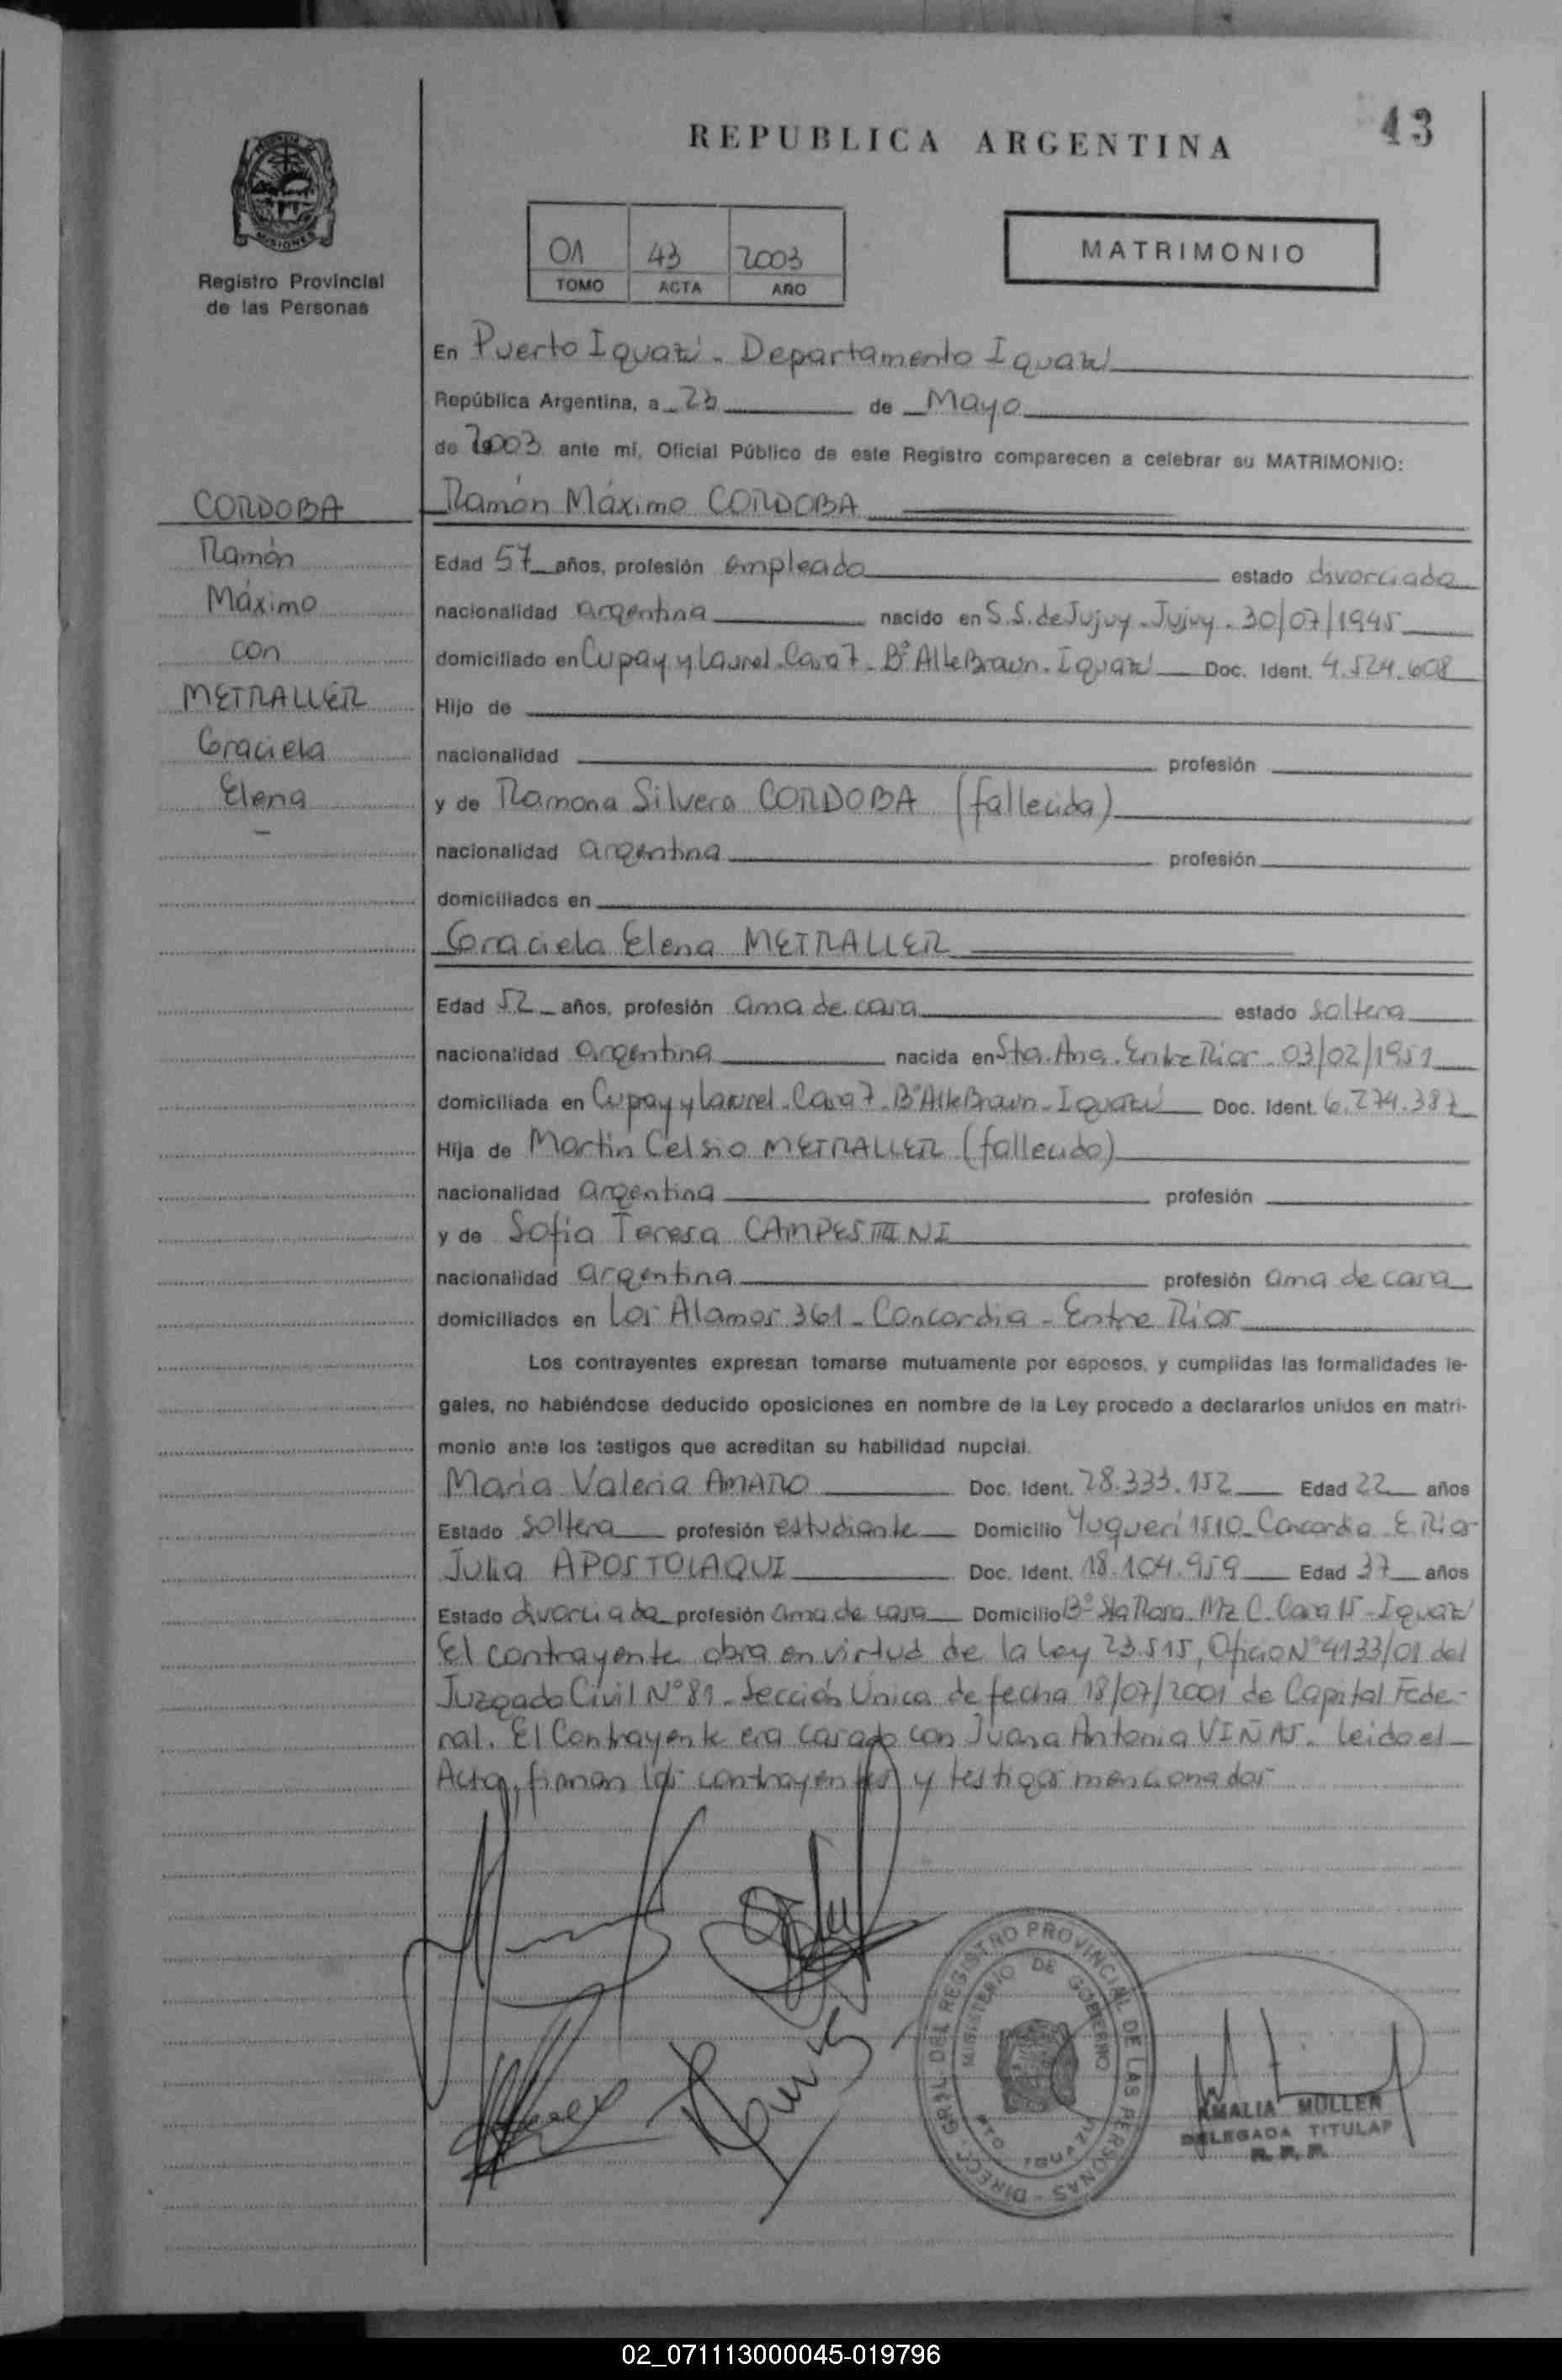 43
REPUBLICA ARGENTINA
MISIONES
Registro Provincial
de las Personas
01 43 2003
TOMO ACTA AÑO
MATRIMONIO
En Puerto Iguazú - Departamento Iguazú
República Argentina, a 23 de Mayo
de 2003 ante mi, Oficial Público de este Registro comparecen a celebrar su MATRIMONIO:
CORDOBA
Ramón
Máximo
con
METRALLER
Graciela
Elena
Ramón Máximo CORDOBA
Edad 57 años, profesión empleado estado divorciado
nacionalidad argentina nacido en S.S. de Jujuy - Jujuy - 30/07/1945
domiciliado en Cupay y Laurel - Casa 7 - B° Alte Brown - Iguazú Doc. Ident. 4.524.608
Hijo de
nacionalidad profesión
y de Ramona Silvera CORDOBA (fallecida)
nacionalidad argentina profesión
domiciliados en
Graciela Elena METRALLER
Edad 52 años, profesión ama de casa estado soltera
nacionalidad argentina nacida en Sta. Ana - Entre Rios - 03/02/1951
domiciliada en Cupay y Laurel - Casa 7 - B° Alte Brown - Iguazú Doc. Ident. 6.274.387
Hija de Martin Celsio METRALLER (fallecido)
nacionalidad argentina profesión
y de Sofia Teresa CAMPESTRINI
nacionalidad argentina profesión ama de casa
domiciliados en Los Alamos 361 - Concordia - Entre Rios
Los contrayentes expresan tomarse mutuamente por esposos, y cumplidas las formalidades le-
gales, no habiéndose deducido oposiciones en nombre de la Ley procedo a declararlos unidos en matri-
monio ante los testigos que acreditan su habilidad nupcial.
Maria Valeria AMARO Doc. Ident. 28.333.152 Edad 22 años
Estado soltera profesión estudiante Domicilio Yuqueri 1510 - Concordia - E. Rios
Julia APOSTOLAQUI Doc. Ident. 18.104.959 Edad 37 años
Estado divorciada profesión ama de casa Domicilio B° Sta Rosa - Mz C - Casa 15 - Iguazú
El contrayente obra en virtud de la Ley 23.515, Oficio N° 4133/01 del
Juzgado Civil N° 81 - Sección Única de fecha 18/07/2001 de Capital Fede-
ral. El Contrayente era casado con Juana Antonia VIÑAS. Leido el
Acta, firman los contrayentes y testigos mencionados
DIRECC. GRAL DEL REGISTRO PROVINCIAL DE LAS PERSONAS -
MINISTERIO DE GOBIERNO
PTO IGUAZU
AMALIA MULLER
DELEGADA TITULAR
R. P. P.
02_071113000045-019796